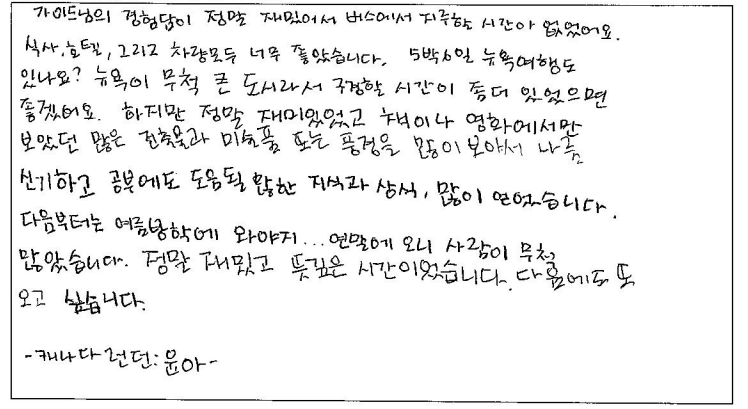 가이드님의 경험담이 정말 재밌어서 버스에서 지루할 시간이 없었어요.
식사, 호텔, 그리고 차량모두 너무 좋았습니다. 5박6일 뉴욕여행도
있나요? 뉴욕이 무척 큰 도시라서 구경할 시간이 좀더 있었으면
좋겠어요. 하지만 정말 재미있었고 책이나 영화에서만
보았던 많은 건축물과 미술품 또는 풍경을 많이 보아서 나름
신기하고 공부에도 도움될 많한 지식과 상식, 많이 얻었습니다.
다음부터는 여름방학에 와야지... 연말에 오니 사람이 무척
많았습니다. 정말 재밌고 뜻깊은 시간이었습니다. 다음에도 또
오고 싶습니다.
-캐나다 런던: 윤아-